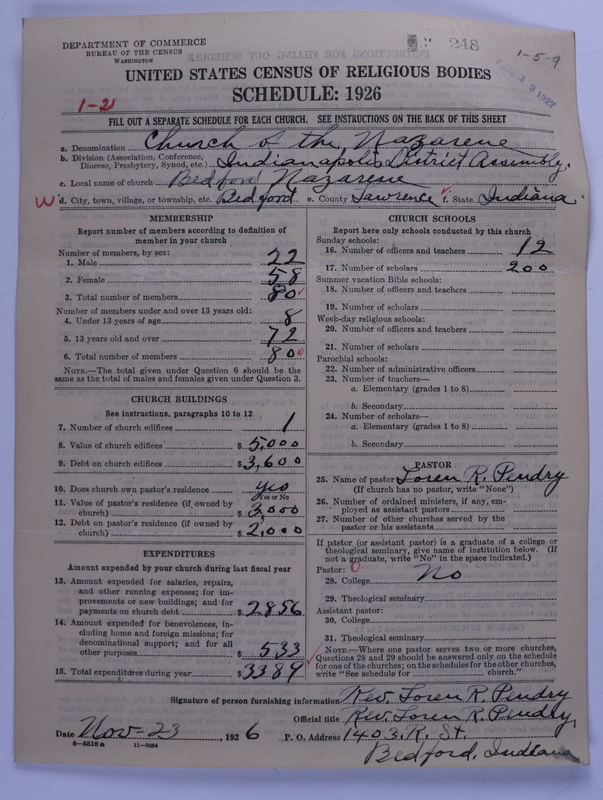 DEPARTMENT OF COMMERCE
BUREAU OF THE CENSUS
WASHINGTON
248
1-5-9
UNITED STATES CENSUS OF RELIGIOUS BODIES
SCHEDULE: 1926
1-21
FILL OUT A SEPARATE SCHEDULE FOR EACH CHURCH. SEE INSTRUCTIONS ON THE BACK OF THIS SHEET
a. Denomination Church of the Nazarene
b. Division (Association, Conference, Diocese, Presbytery, Synod, etc.) Indianapolis District Assembly.
c. Local name of church Bedford Nazarene
W d. City, town, village, or township, etc. Bedford e. County Lawrence f. State Indiana
MEMBERSHIP
Report number of members according to definition of
member in your church
Number of members, by sex:
1. Male 22
2. Female 58
3. Total number of members 80
Number of members under and over 13 years old:
4. Under 13 years of age 8
5. 13 years old and over 72
6. Total number of members 80
NOTE.—The total given under Question 6 should be
same as the total of males and females given under Question 3.
CHURCH BUILDINGS
See instructions, paragraphs 10 to 12
7. Number of church edifices 1
8. Value of church edifices $ 5,000
9. Debt on church edifices $ 3,600
10. Does church own pastor's residence yes
Yes or No
11. Value of pastor's residence (if owned by
church) $ 3,000
12. Debt on pastor's residence (if owned by
church) $ 2,000
EXPENDITURES
Amount expended by your church during last fiscal year
13. Amount expended for salaries, repairs,
and other running expenses; for im-
provements or new buildings; and for
payments on church debt $ 2856
14. Amount expended for benevolences, in-
cluding home and foreign missions; for
denominational support; and for all
other purposes $ 533
15. Total expenditures during year $ 3389
CHURCH SCHOOLS
Report here only schools conducted by this church
Sunday schools:
16. Number of officers and teachers 12
17. Number of scholars 200
Summer vacation Bible schools:
18. Number of officers and teachers
19. Number of scholars
Week-day religious schools:
20. Number of officers and teachers
21. Number of scholars
Parochial schools:
22. Number of administrative officers
23. Number of teachers—
a. Elementary (grades 1 to 8)
b. Secondary
24. Number of scholars—
a. Elementary (grades 1 to 8)
b. Secondary
PASTOR
25. Name of pastor Loren R. Pendry
(If church has no pastor, write "None")
26. Number of ordained ministers, if any, em-
ployed as assistant pastors
27. Number of other churches served by the
pastor or his assistants
If pastor (or assistant pastor) is a graduate of a college or
theological seminary, give name of institution below. (If
not a graduate, write "No" in the space indicated.)
Pastor: 0
28. College No
29. Theological seminary
Assistant pastor:
30. College
31. Theological seminary
NOTE.—Where one pastor serves two or more churches,
Questions 28 and 29 should be answered only on the schedule
for one of the churches; on the schedules for the other churches,
write "See schedule for church."
Signature of person furnishing information Rev. Loren R. Pendry
Official title Rev. Loren R. Pendry,
Date Nov-23, 1926 P. O. Address 1403. K. St.
8-5518 a 11-9034
Bedford, Indiana